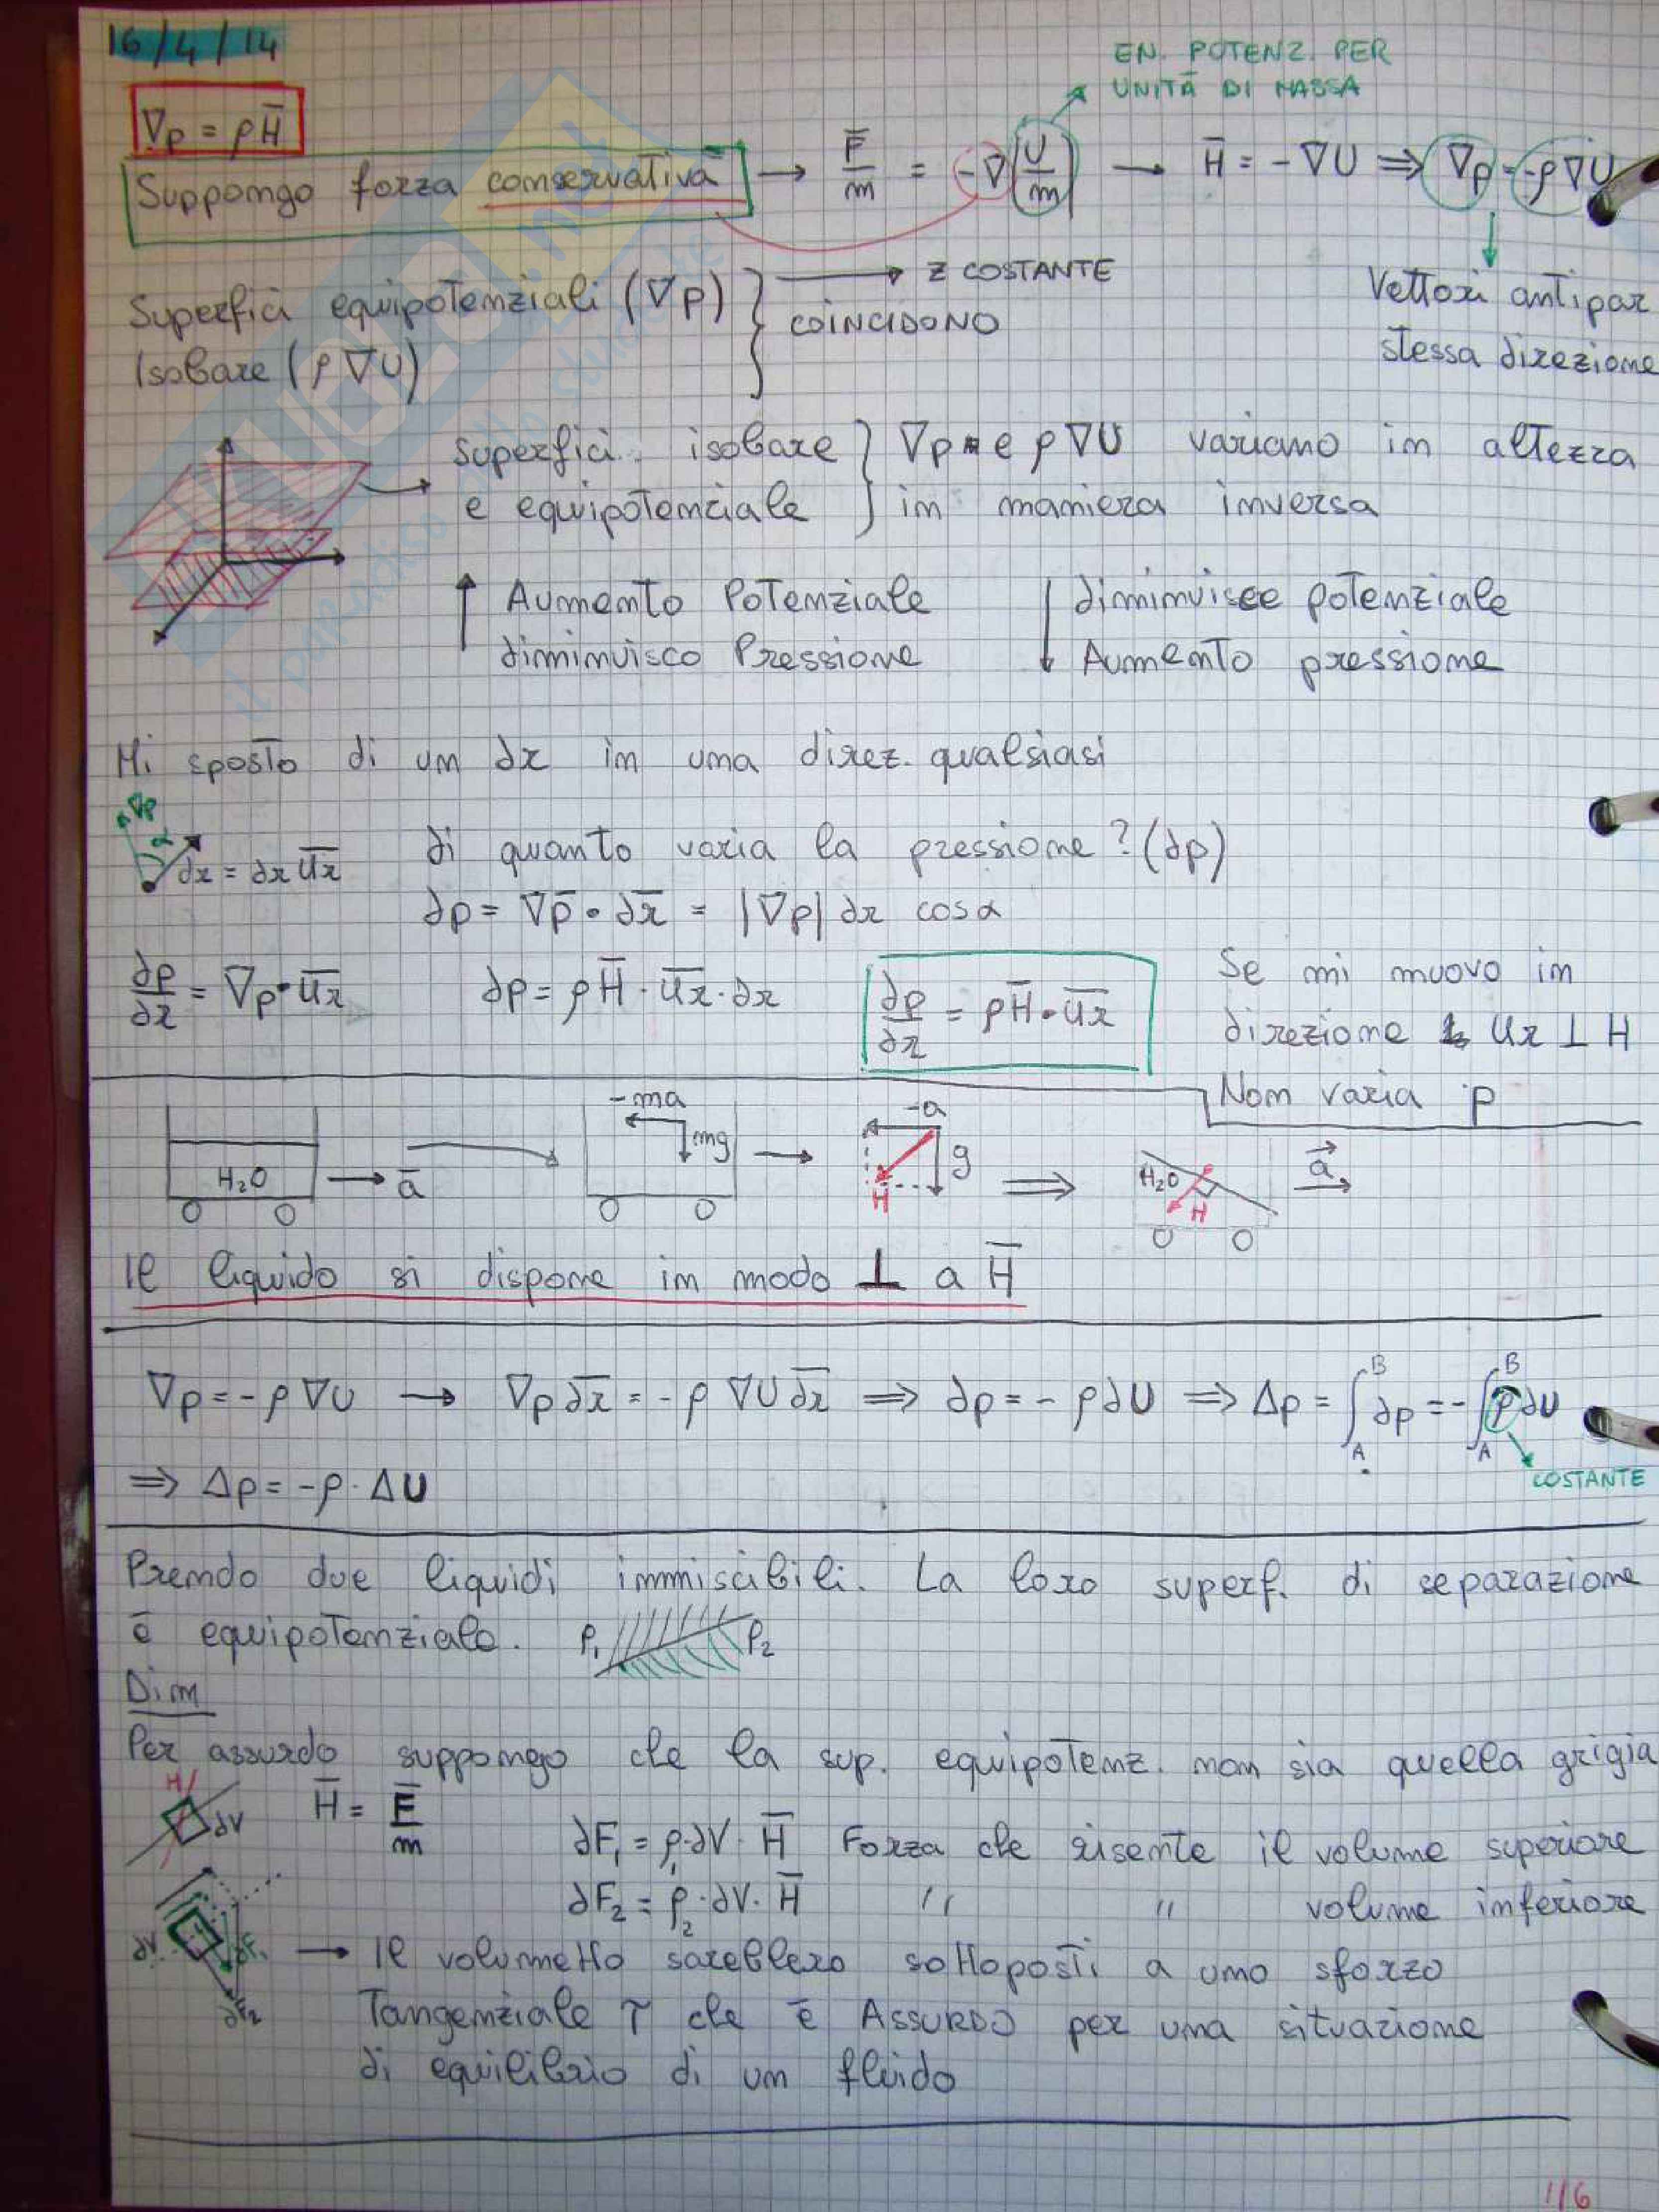 16/4/14
EN. POTENZ. PER
UNITÀ DI MASSA
∇p = ρH̅
Suppongo forza conservativa → F̅/m = -∇(U/m) → H̅ = -∇U ⇒ ∇p = -ρ∇U
Superfici equipotenziali (∇p) } → z COSTANTE
Isobare (ρ∇U) COINCIDONO
Vettori antipar
stessa direzione
Superfici isobare } ∇p e ρ∇U variano in altezza
e equipotenziale } in maniera inversa
↑ Aumento Potenziale ↓ diminuisce potenziale
diminuisco Pressione Aumento pressione
Mi sposto di un dx in una direz. qualsiasi
∇p α dx = dx u̅x̅ di quanto varia la pressione? (dp)
dp = ∇p̅ • dx̅ = |∇p| dx cosα
dp/dx = ∇p • u̅x̅ dp = ρH̅ • u̅x̅ • dx dp/dx = ρH̅ • u̅x̅
Se mi muovo in
direzione ux ⊥ H
Non varia p
H₂O → a̅ -ma mg → -a g H ⇒ H₂O H a⃗
Il liquido si dispone in modo ⊥ a H̅
∇p = -ρ∇U → ∇p dx̅ = -ρ ∇U dx̅ ⇒ dp = -ρdU ⇒ Δp = ∫_A^B dp = -∫_A^B ρdU
COSTANTE
⇒ Δp = -ρ · ΔU
Prendo due liquidi immiscibili. La loro superf. di separazione
è equipotenziale. ρ₁ ρ₂
Dim
Per assurdo suppongo che la sup. equipotenz. non sia quella grigia
H dV H̅ = F̅/m
dF₁ = ρ₁·dV·H̅ Forza che risente il volume superiore
dF₂ = ρ₂·dV·H̅ " " volume inferiore
dV dF₁ dF₂ → Il volumetto sarebbero sottoposti a uno sforzo
Tangenziale τ che è ASSURDO per una situazione
di equilibrio di un fluido
116